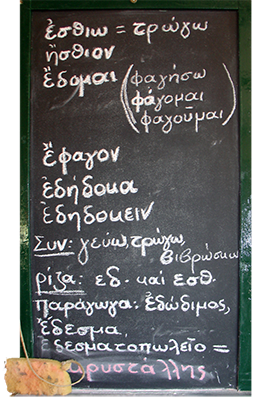 ἐσθίω = τρώγω
ἤσθιον
ἔδομαι (φαγήσω
φάγομαι
φαγοῦμαι)
ἔφαγον
ἐδήδοκα
ἐδηδοκειν
Συν: γεύω, τρώγω,
βιβρώσκω
ρίζα: εδ. και εσθ.
παράγωγα: ἐδώδιμος,
ἔδεσμα,
ἐδεσματοπωλεῖο =